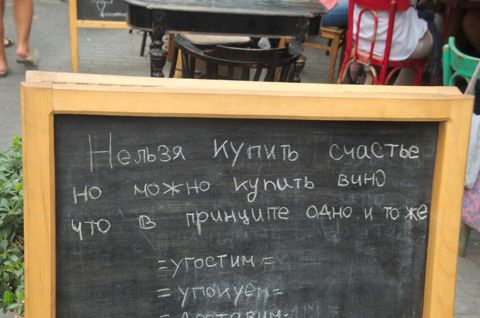 Нельзя купить счастье
но можно купить вино
что в принципе одно и то же
=угостим=
=упакуем=